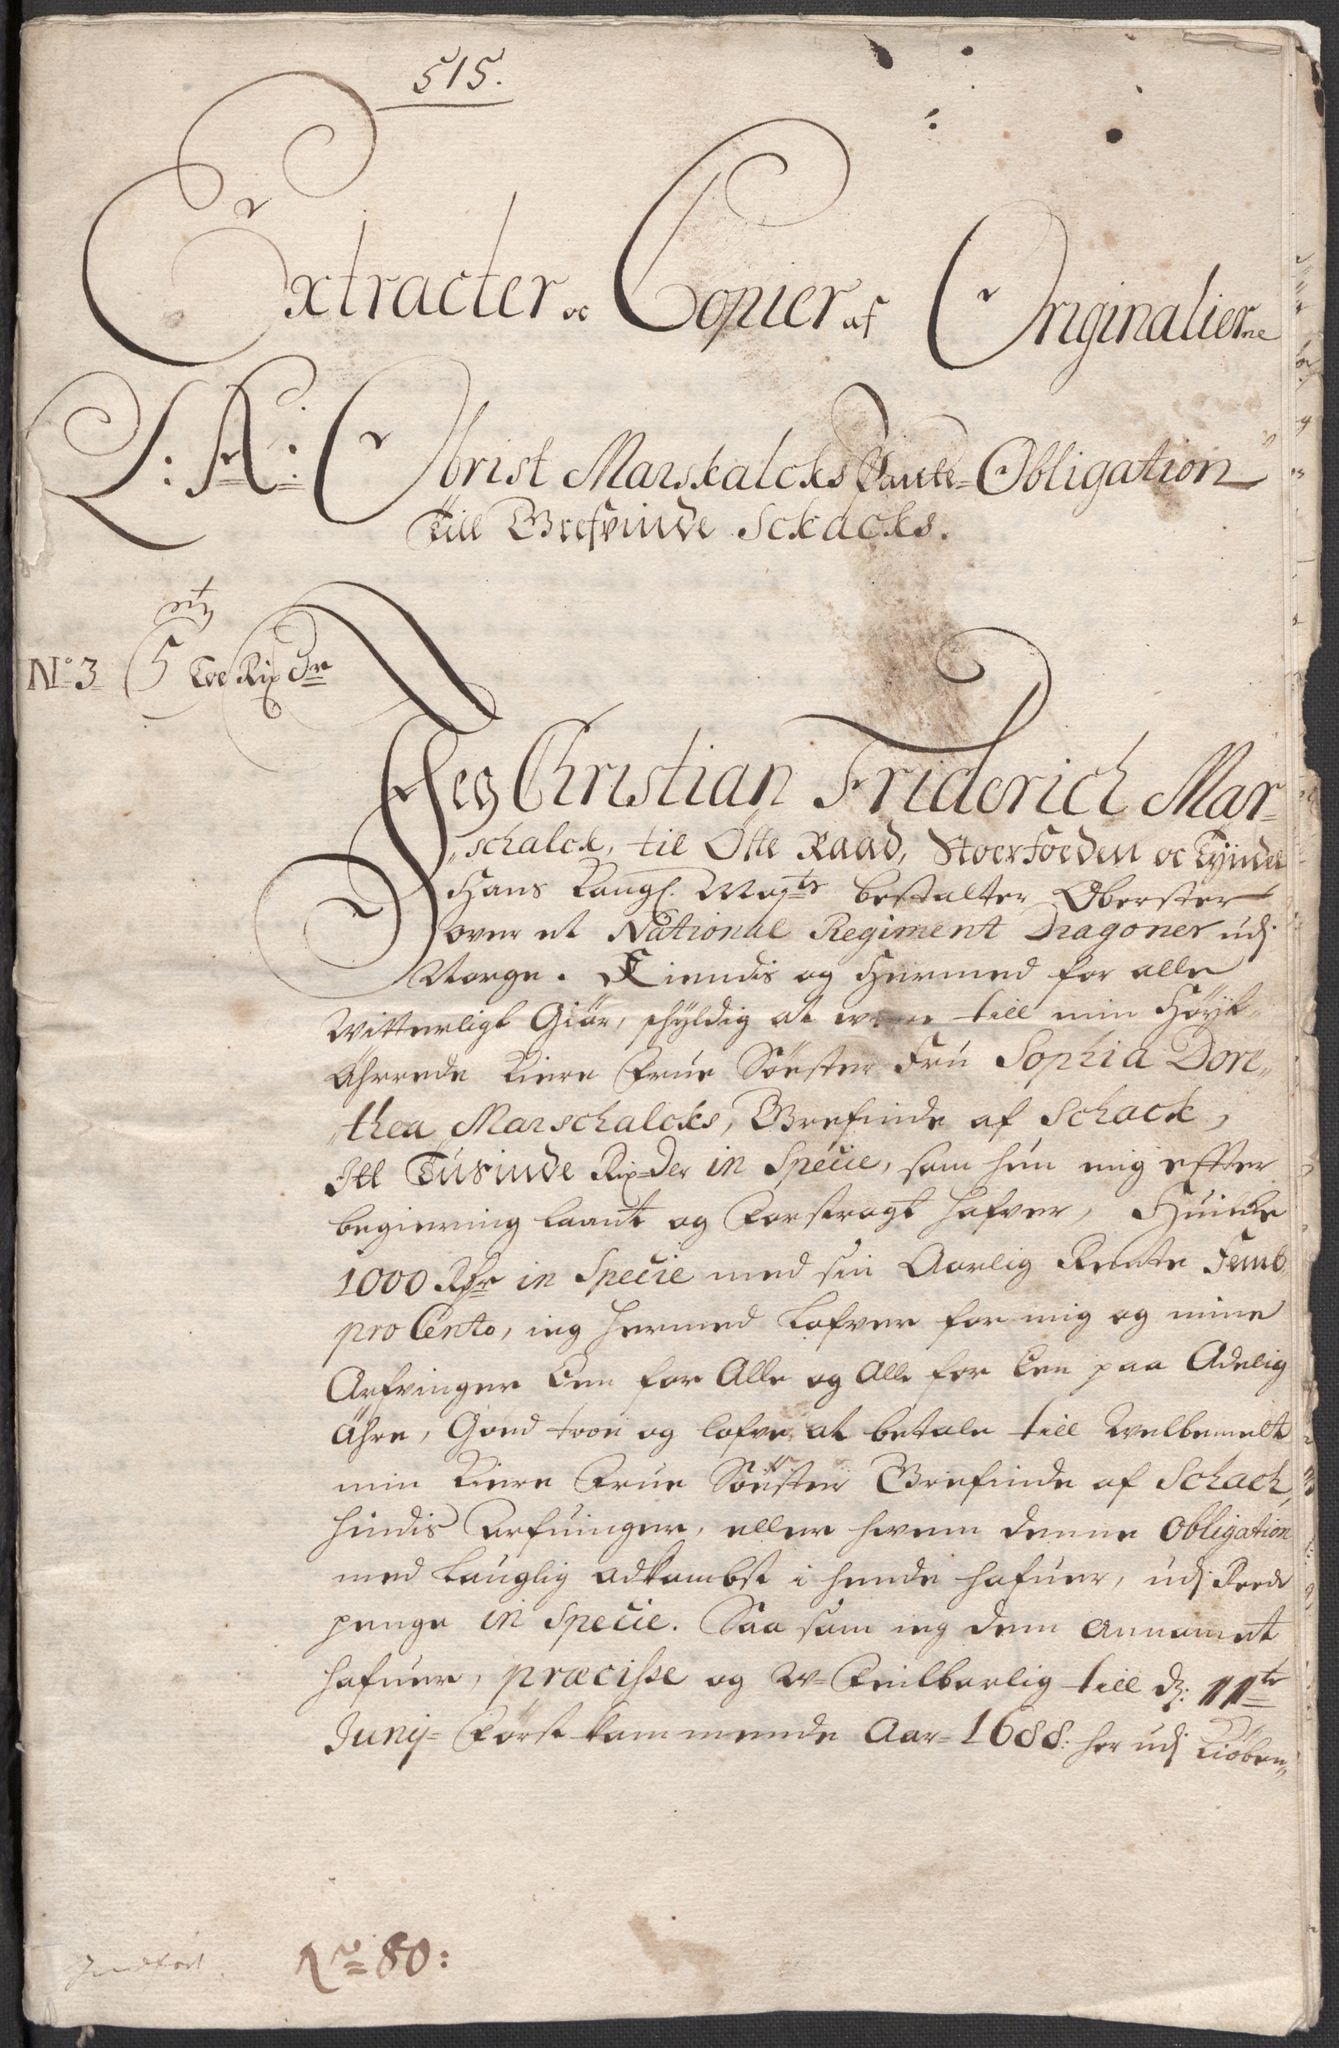 515.
Extracter oc Copier af Originalierne
L: A: Obrist Marskalcks Pante-Obligation
till Grefvinde Sckacks.
No 3
5 Tve Rix dr
Jeg Christian Friderich Mar-
schalck, til Otte Raad, Stoerfoeden oc Tyindel
Hans Kongl. Mayts bestalter Oberster
over et National Regiment Dragoner udj
Norge. Kiendis og hermed for alle
Witterligt Giör, schyldig at were till min Höyt-
Ährede Kiere Frue Söester Fru Sophia Dore,,
,,thea Marschalcks, Grefinde af Schack,
Itt Tusinde Rix-Der in Specie, som hun mig efter
begiering laant og Forstragt hafver, Huilke
1000 Rdr in Specie med sin Aarlig Rente Femb
pro Cento, ieg hermed Lofver for mig og mine
Arfvinger Een for Alle og Alle for Een paa Adelig
Ähre, Goed troe og lofve at betale till Welbemelt
min Kiere Frue Söester Grefinde af Schach,
hindis Arfuinger, eller hvem denne Obligation
med Lauglig adkombst i hende hafuer, udj Rede
penge in Specie. Saa som ieg dem Annamet
hafuer, præcisse og u-Feilbarlig till d: 11te
Junij- Först kommende Aar- 1688: her udj Kiöben,,
No 80: